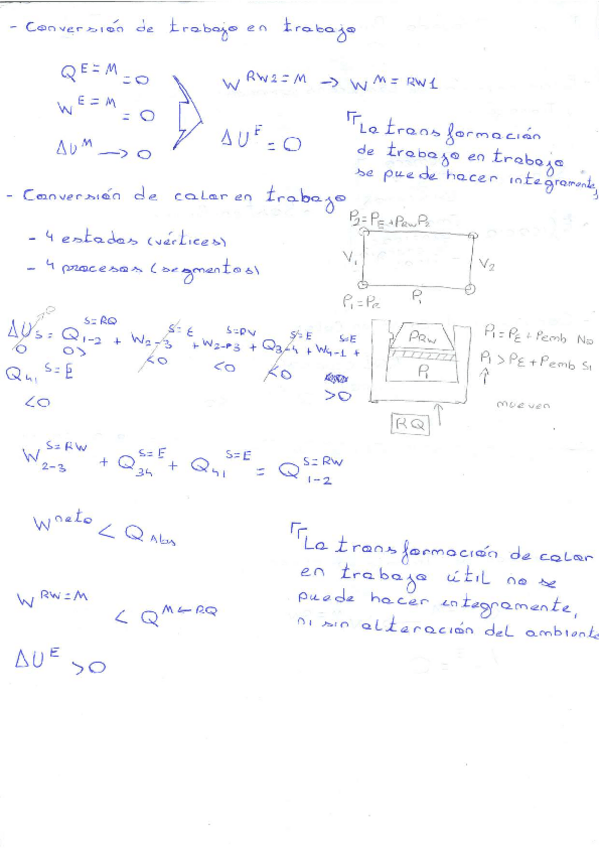 - Conversión de trabajo en trabajo
Q^E⇌M = 0
W^RW2⇌M → W^M⇌RW1
W^E⇌M = 0
ΔU^M → 0
ΔU^E = 0
"La transformación
de trabajo en trabajo
se puede hacer integramente,
- Conversión de calor en trabajo
- 4 estados (vértices)
- 4 procesos (segmentos)
P2=PE+PRW P2
V1
V2
P1=PE
P1
ΔUs = Q1-2^S⇌RQ + W2-3^S⇌E + W2-3 + Q3-4^S⇌E + W4-1^S⇌E +
0 0> <0 <0 <0 >0
Q41^S⇌E
<0
PRW
P1
RQ
P1=PE+Pemb No
P1>PE+Pemb Si
mueven
W2-3^S⇌RW + Q34^S⇌E + Q41^S⇌E = Q1-2^S⇌RW
W^neto < Q Abs
"La transformación de calor
en trabajo útil no se
puede hacer integramente,
ni sin alteración del ambiente
W^RW⇌M < Q^M←RQ
ΔU^E >0